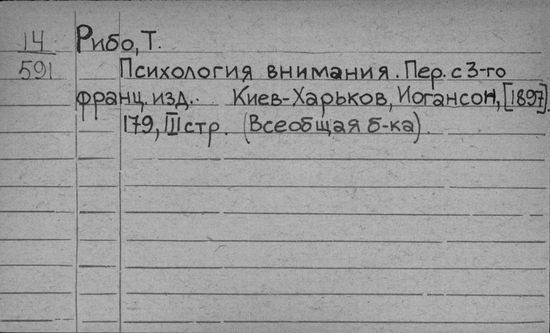 14 Рибо, Т.
591 Психология внимания. Пер. с 3-го
франц. изд. Киев-Харьков, Иогансон, [1897].
179, III стр. (Всеобщая б-ка).